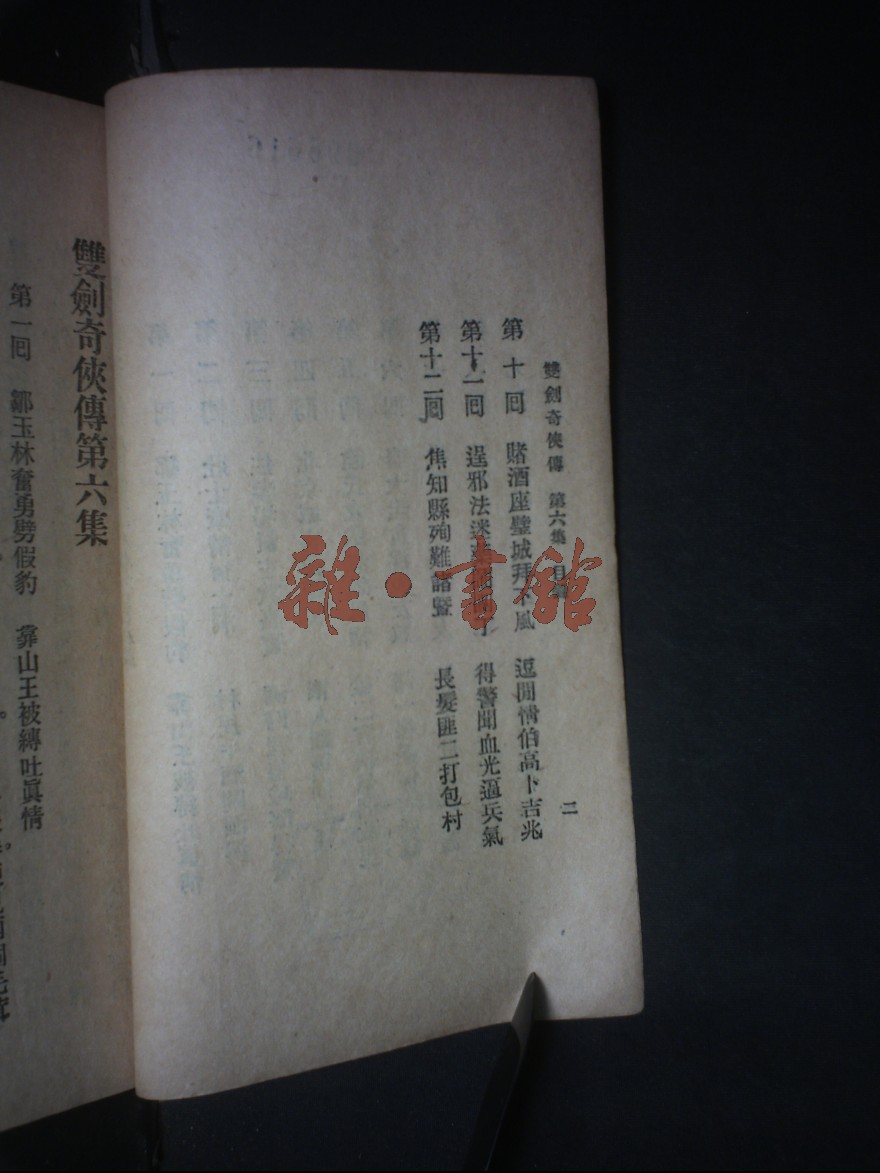 雙劍奇俠傳 第六集 目 二
第十回 賭酒座璧城拜下風 逗閒情伯高卜吉兆
第十一回 逞邪法迷 得警聞血光逼兵氣
第十二回 焦知縣殉難諸暨 長髮匪二打包村
雙劍奇俠傳第六集
第一回 鄒玉林奮勇劈假豹 靠山王被縛吐眞情
雜·書館